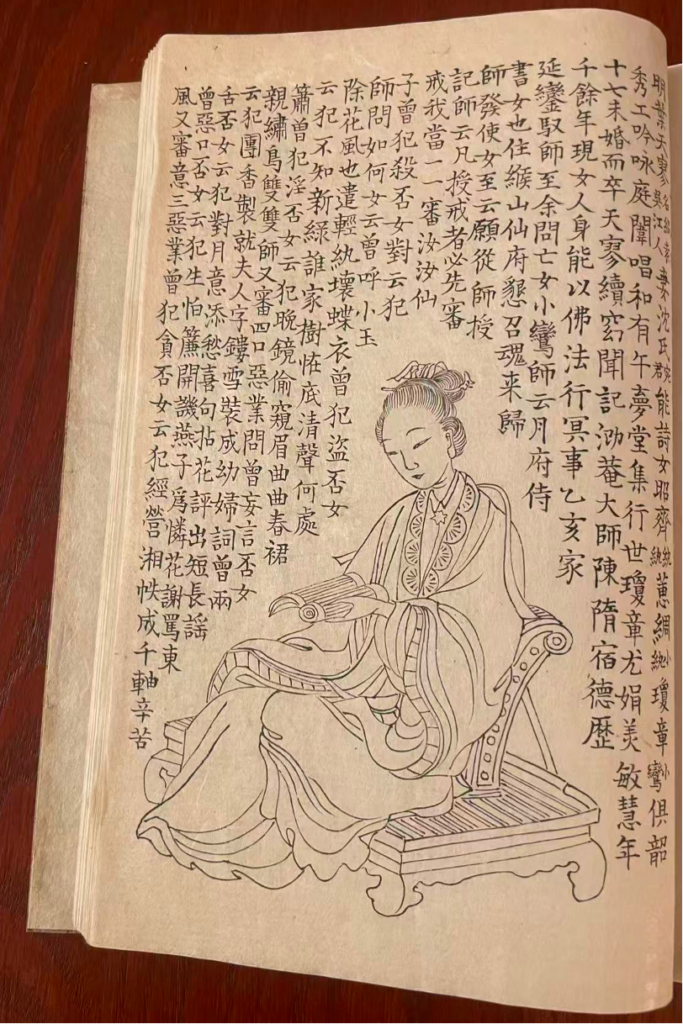 明葉天寥名紹袁吳江人妻沈氏宛君能詩女昭齊紈紈蕙綢小紈瓊章小鸞俱韶
秀工吟咏庭闈唱和有午夢堂集行世瓊章尤娟美敏慧年
十七未婚而卒天寥續窈聞記泐菴大師陳隋宿德歷
千餘年現女人身能以佛法行冥事乙亥家
延鸞馭師至余問亡女小鸞師云月府侍
書女也住緱山仙府懇召魂来歸
師發使女至云願從師授
記師云凡授戒者必先審
戒我當一一審汝汝仙
子曾犯殺否女對云犯
師問如何女云曾呼小玉
除花風也遣輕紈壞蝶衣曾犯盜否女
云犯不知新緑誰家樹恠底清聲何處
簫曾犯淫否女云犯晚鏡偷窺眉曲曲春裙
親繡鳥雙雙師又審四口惡業問曾妄言否女
云犯團香製就夫人字鏤雪裝成幼婦詞曾兩
舌否女云犯對月意添愁喜句拈花評出短長謡
曾惡口否女云犯生怕簾開譏燕子爲憐花謝罵東
風又審意三惡業曾犯貪否女云犯經營湘帙成千軸辛苦